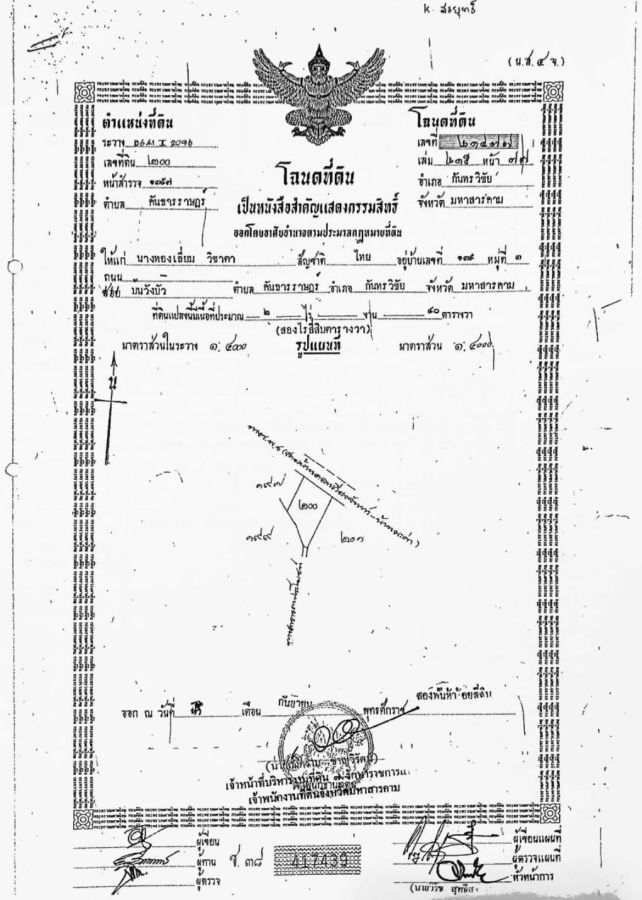 k. สรยุทธ์
(น.ส.๔ จ.)
ตำแหน่งที่ดิน
โฉนดที่ดิน
ระวาง
เลขที่ ๒๑๔๓๗
เลขที่ดิน ๒๐๐
เล่ม ๒๑๕ หน้า ๓๗
หน้าสำรวจ
โฉนดที่ดิน
อำเภอ กันทรวิชัย
ตำบล คันธารราษฎร์
เป็นหนังสือสำคัญแสดงกรรมสิทธิ์
จังหวัด มหาสารคาม
ออกโดยอาศัยอำนาจตามประมวลกฎหมายที่ดิน
ให้แก่ นางทองเลี่ยม วิชาดา สัญชาติ ไทย อยู่บ้านเลขที่ ๑๓๙ หมู่ที่ ๓
ถนน
ซอย บ้านวังบัว ตำบล คันธารราษฎร์ อำเภอ กันทรวิชัย จังหวัด มหาสารคาม
ที่ดินแปลงนี้มีเนื้อที่ประมาณ ๒ ไร่ - งาน ๔๐ ตารางวา
(สองไร่สี่สิบตารางวา)
มาตราส่วนในระวาง ๑:๔๐๐๐ รูปแผนที่ มาตราส่วน ๑:๔๐๐๐
น
๑๙๗
๒๐๐
๑๙๙
๒๐๑
ออก ณ วันที่ เดือน กันยายน พุทธศักราช
เจ้าหน้าที่บริหารงานที่ดิน
เจ้าพนักงานที่ดินจังหวัดมหาสารคาม
ผู้เขียน
ผู้ทาน
ผู้ตรวจ
ช.๓๘ 417439
ผู้เขียนแผนที่
ผู้ตรวจแผนที่
หัวหน้าการ